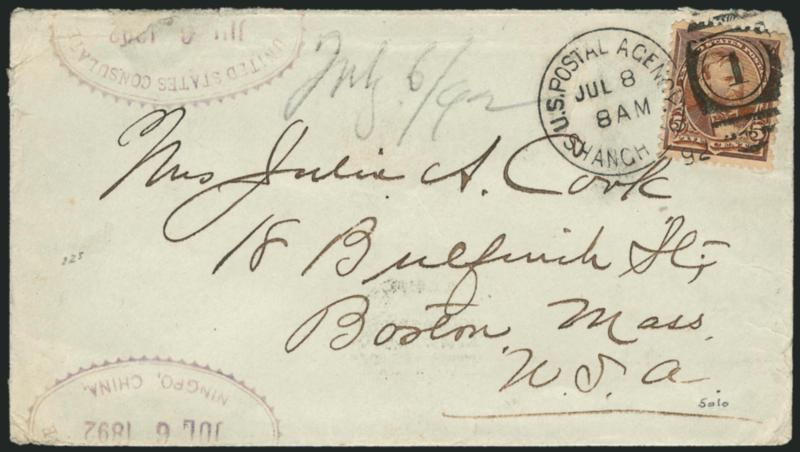 UNITED STATES CONSULATE
JUL 6 1892
July 6/92
U.S. POSTAL AGENCY
JUL 8
8AM
SHANGH
92
1
Mrs Julia A. Cook
18 Bulfinch St.,
Boston, Mass.
U.S.A.
225
5010
NINGPO, CHINA.
JUL 6 1892